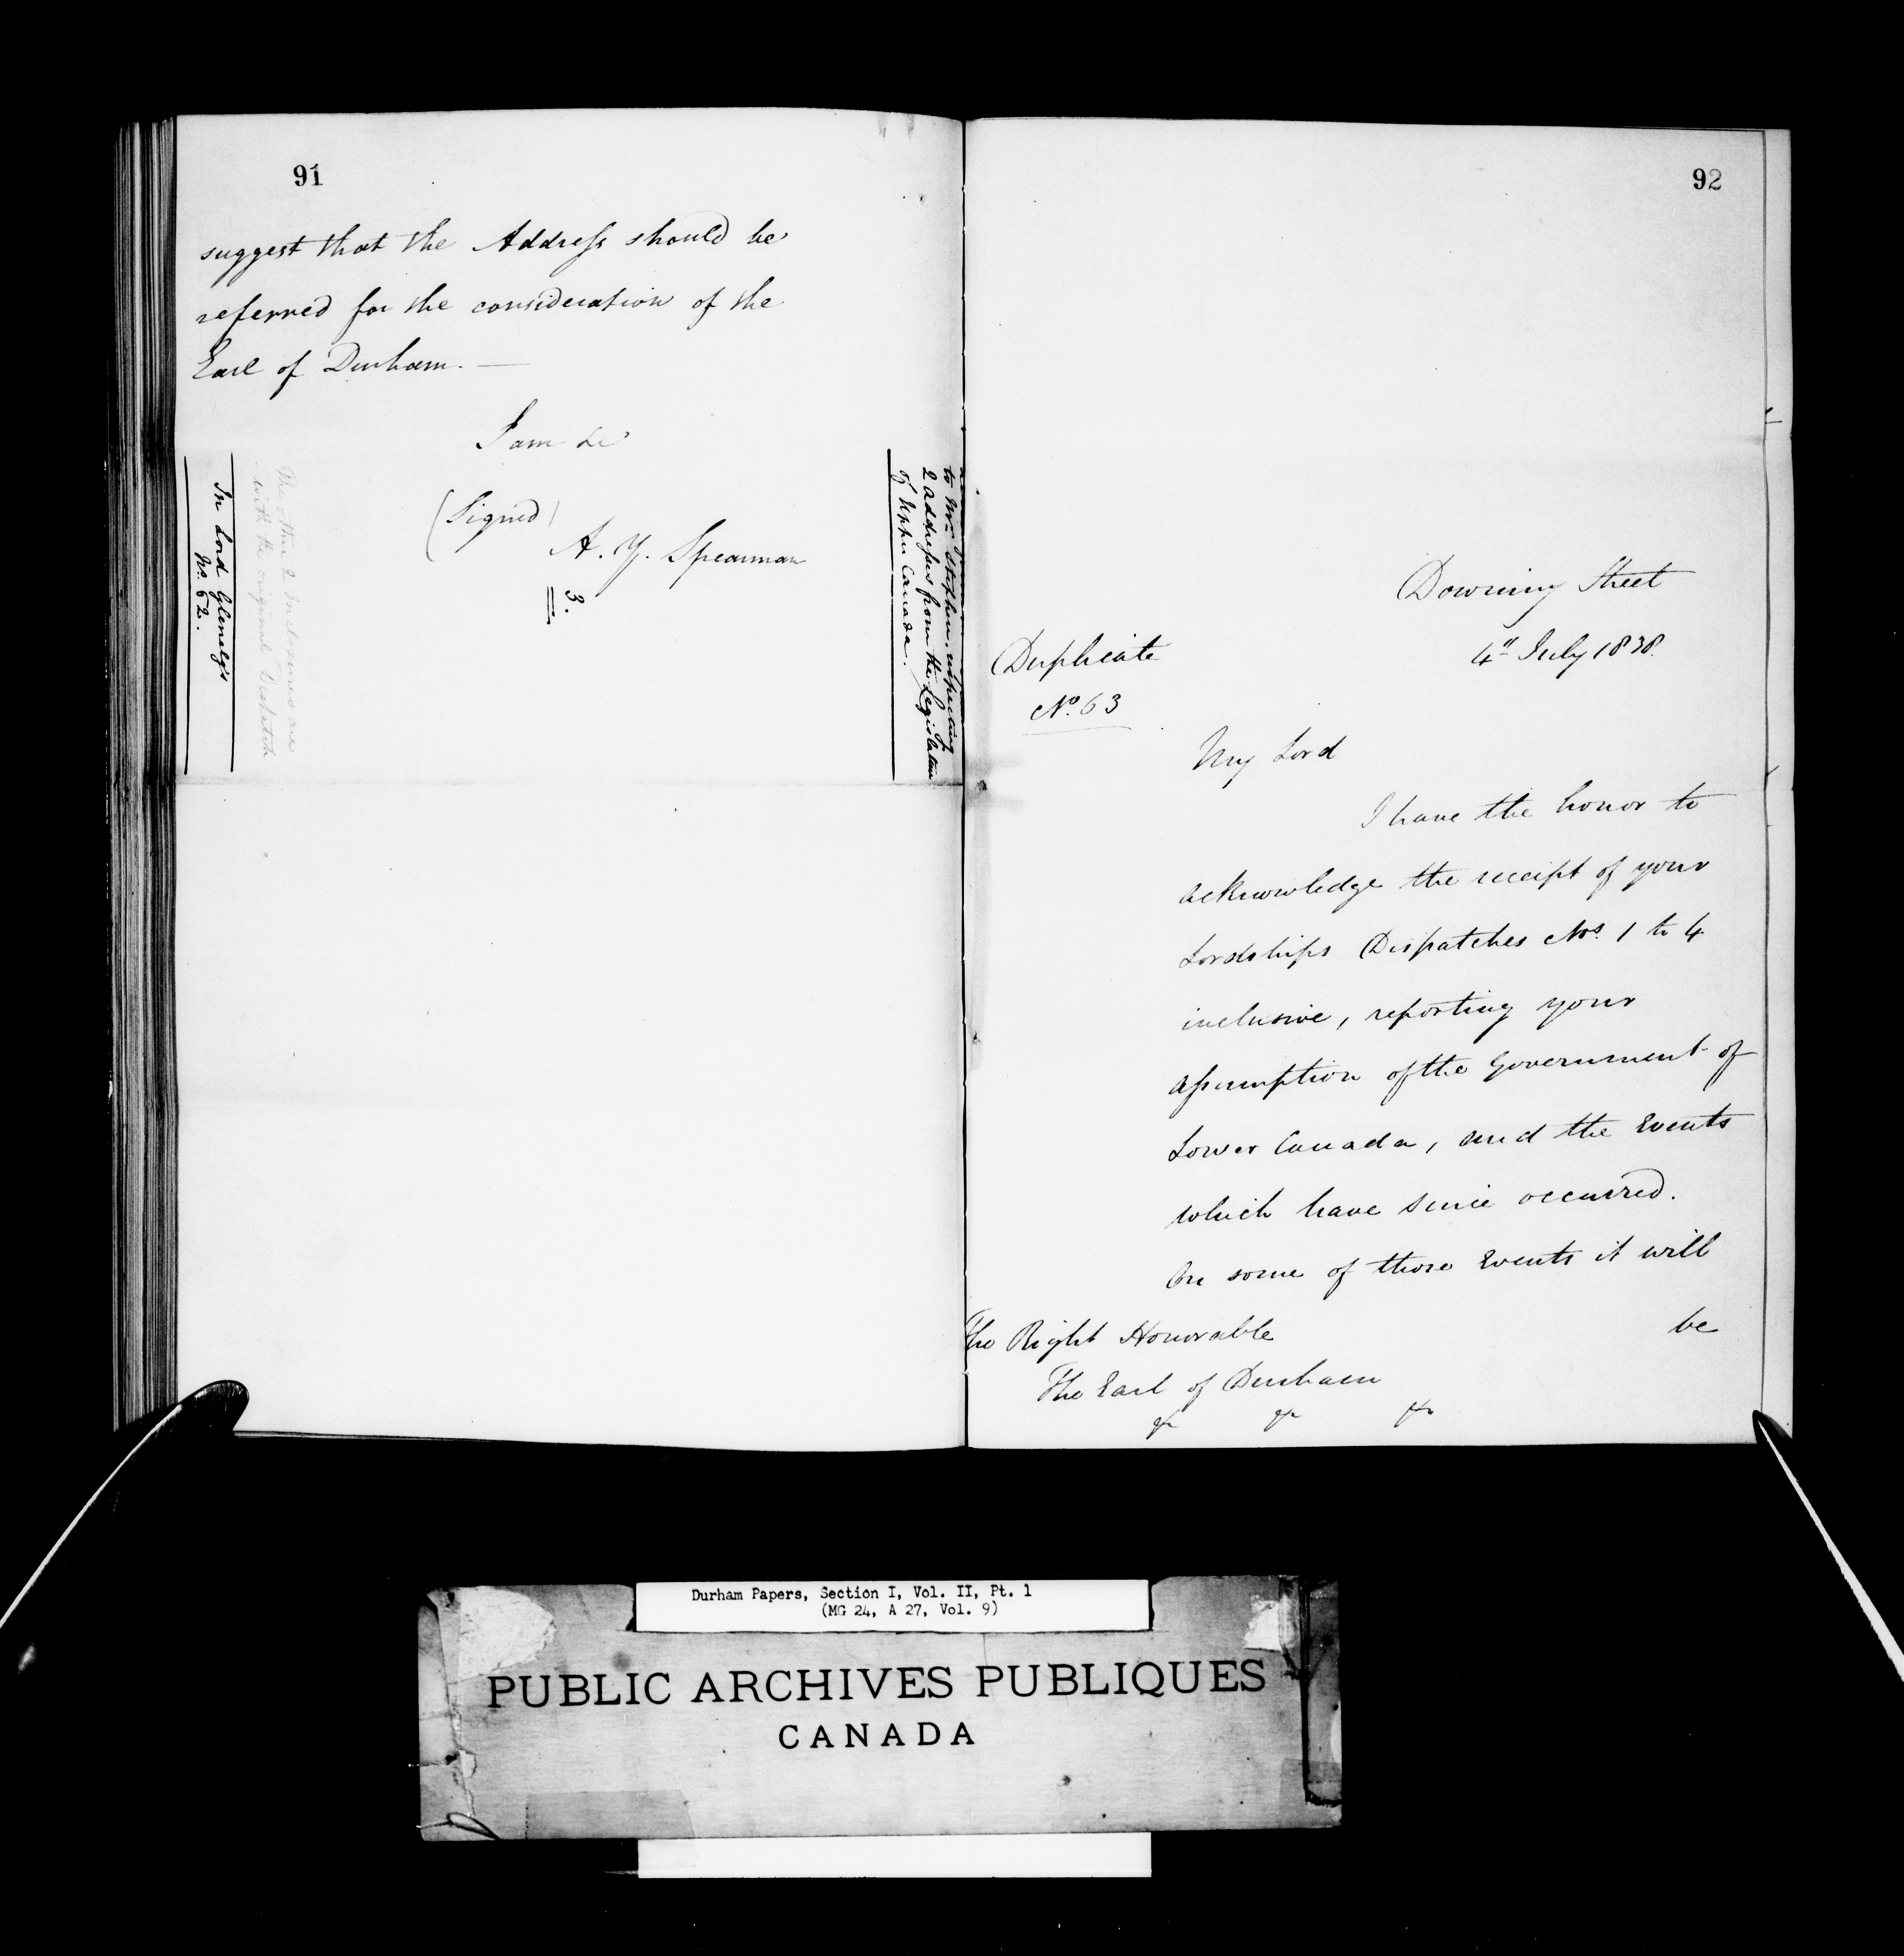 91
suggest that the Address should be
referred for the consideration of the
Earl of Durham. —
I am &c
(Signed)
A. Y. Spearman
3.
to Mr. Stephen, respecting
2 addresses from the Legislature
of Upper Canada.
The other 2 Inclosures are
with the original Despatch
In Lord Glenelg's
No. 62.
92
Downing Street
4th July 1838.
Duplicate
No. 63
My Lord
I have the honor to
acknowledge the receipt of your
Lordships Dispatches Nos. 1 to 4
inclusive, reporting your
assumption of the Government of
Lower Canada, and the Events
which have since occurred.
On some of those Events it will
be
The Right Honorable
The Earl of Durham
&c &c &c
Durham Papers, Section I, Vol. II, Pt. 1
(MG 24, A 27, Vol. 9)
PUBLIC ARCHIVES PUBLIQUES
CANADA